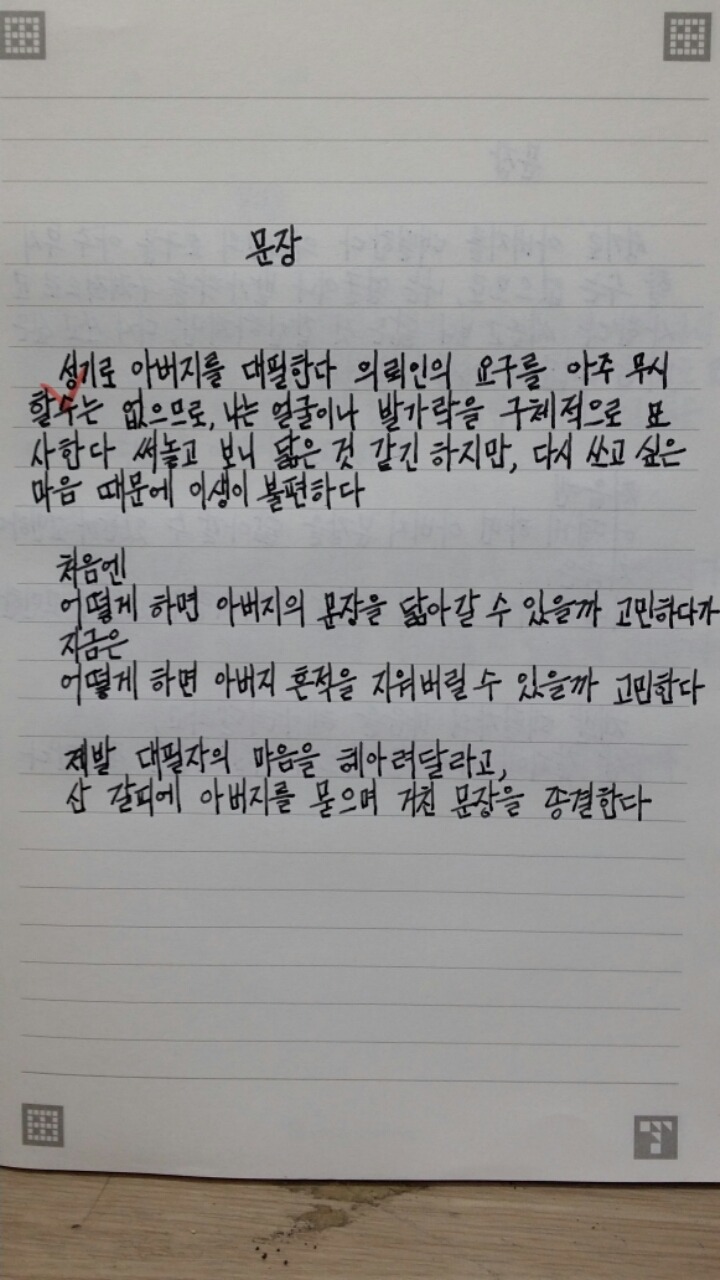 문장
성기로 아버지를 대필한다 의뢰인의 요구를 아주 무시
할 수는 없으므로, 나는 얼굴이나 발가락을 구체적으로 묘
사한다 써놓고 보니 닮은 것 같긴 하지만, 다시 쓰고 싶은
마음 때문에 이생이 불편하다
처음엔
어떻게 하면 아버지의 문장을 닮아갈 수 있을까 고민하다가
지금은
어떻게 하면 아버지 흔적을 지워버릴 수 있을까 고민한다
제발 대필자의 마음을 헤아려달라고,
산 갈피에 아버지를 묻으며 거친 문장을 종결한다